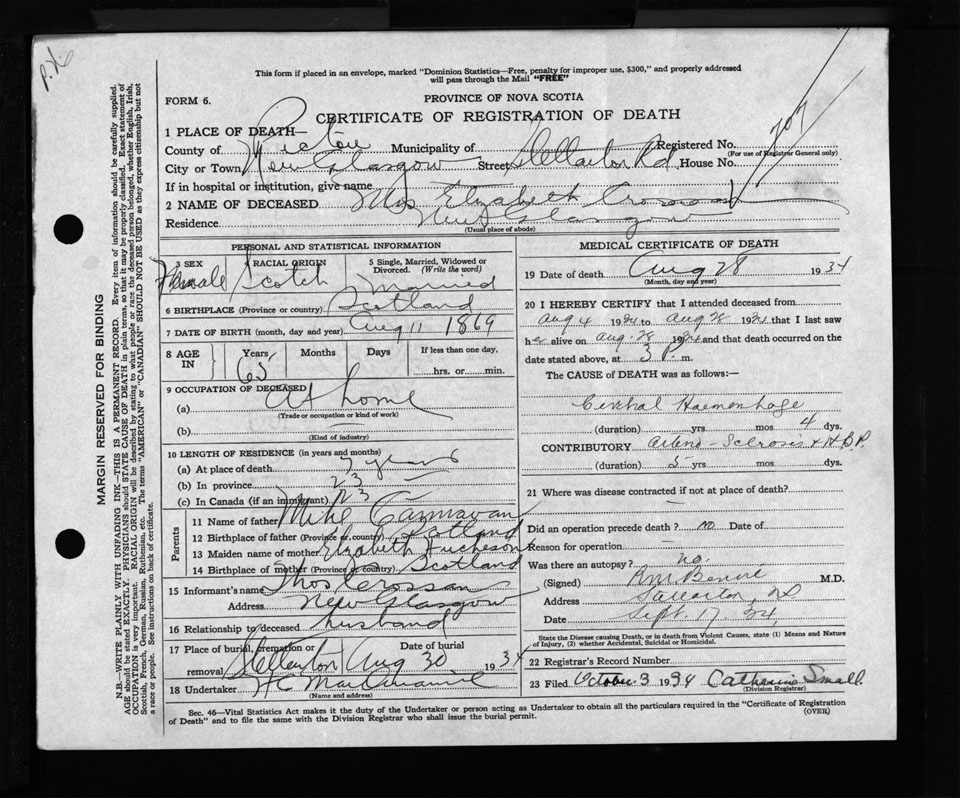 P.X.
This form if placed in an envelope, marked "Dominion Statistics—Free, penalty for improper use, $300," and properly addressed
will pass through the Mail "FREE"
FORM 6.
PROVINCE OF NOVA SCOTIA
CERTIFICATE OF REGISTRATION OF DEATH
707
1 PLACE OF DEATH—
County of Pictou Municipality of Registered No.
(For use of Registrar General only)
City or Town New Glasgow Street Stellarton Rd. House No.
If in hospital or institution, give name
2 NAME OF DECEASED Mrs Elizabeth Crossan
Residence New Glasgow
(Usual place of abode)
PERSONAL AND STATISTICAL INFORMATION
3 SEX Female
RACIAL ORIGIN Scotch
5 Single, Married, Widowed or Divorced. (Write the word) Married
6 BIRTHPLACE (Province or country) Scotland
7 DATE OF BIRTH (month, day and year) Aug 11 1869
8 AGE IN Years Months Days If less than one day,
65 hrs. or min.
9 OCCUPATION OF DECEASED
(a) At home
(Trade or occupation or kind of work)
(b)
(Kind of industry)
10 LENGTH OF RESIDENCE (in years and months)
(a) At place of death 7 years
(b) In province 23
(c) In Canada (if an immigrant) 23
Parents
11 Name of father Mike
12 Birthplace of father (Province or country) Scotland
13 Maiden name of mother Elizabeth
14 Birthplace of mother (Province or country) Scotland
15 Informant's name Thos Crossan
Address New Glasgow
16 Relationship to deceased husband
17 Place of burial, cremation or removal Stellarton Date of burial Aug 30 1934
18 Undertaker H C
(Name and address)
MEDICAL CERTIFICATE OF DEATH
19 Date of death Aug 28 1934
(Month, day and year)
20 I HEREBY CERTIFY that I attended deceased from
Aug 4 1934 to Aug 28 1934 that I last saw
her alive on Aug. 28 1934 and that death occurred on the
date stated above, at 3 P. m.
The CAUSE of DEATH was as follows:—
Cerebral Haemorrhage
(duration) yrs mos 4 dys.
CONTRIBUTORY Arterio-Sclerosis + H.B.P.
(duration) 5 yrs mos dys.
21 Where was disease contracted if not at place of death?
Did an operation precede death? no Date of
Reason for operation
Was there an autopsy? no.
(Signed) M.D.
Address Stellarton, NS
Date Sept. 17. 34.
State the Disease causing Death, or in death from Violent Causes, state (1) Means and Nature
of Injury, (2) whether Accidental, Suicidal or Homicidal.
22 Registrar's Record Number
23 Filed October 3 1934 Catharine Small
(Division Registrar)
Sec. 46—Vital Statistics Act makes it the duty of the Undertaker or person acting as Undertaker to obtain all the particulars required in the "Certificate of Registration
of Death" and to file the same with the Division Registrar who shall issue the burial permit. (OVER)
MARGIN RESERVED FOR BINDING
N.B.—WRITE PLAINLY WITH UNFADING INK—THIS IS A PERMANENT RECORD. Every item of information should be carefully supplied.
AGE should be stated EXACTLY. PHYSICIANS should STATE CAUSE OF DEATH in plain terms, so that it may be properly classified. Exact statement of
OCCUPATION is very important. RACIAL ORIGIN will be described by stating to what people or race the deceased person belonged, whether English, Irish,
Scottish, French, German, Russian, Ruthenian, etc. The terms "AMERICAN" or "CANADIAN" SHOULD NOT BE USED as they express citizenship but not
a race or people. See instructions on back of certificate.